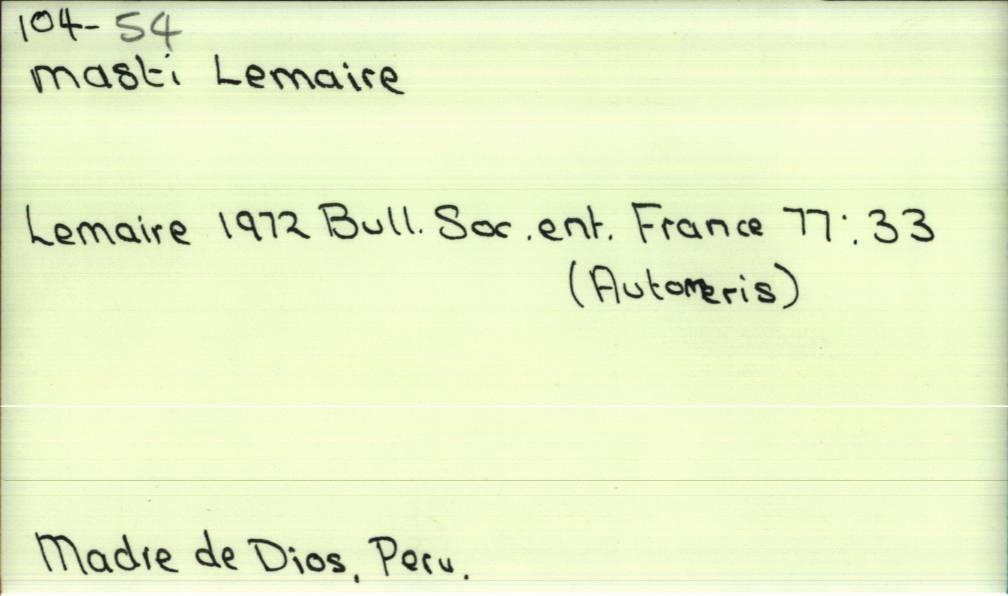 104-54
masti Lemaire
Lemaire 1972 Bull. Soc. ent. France 77:33
(Automeris)
Madre de Dios, Peru.